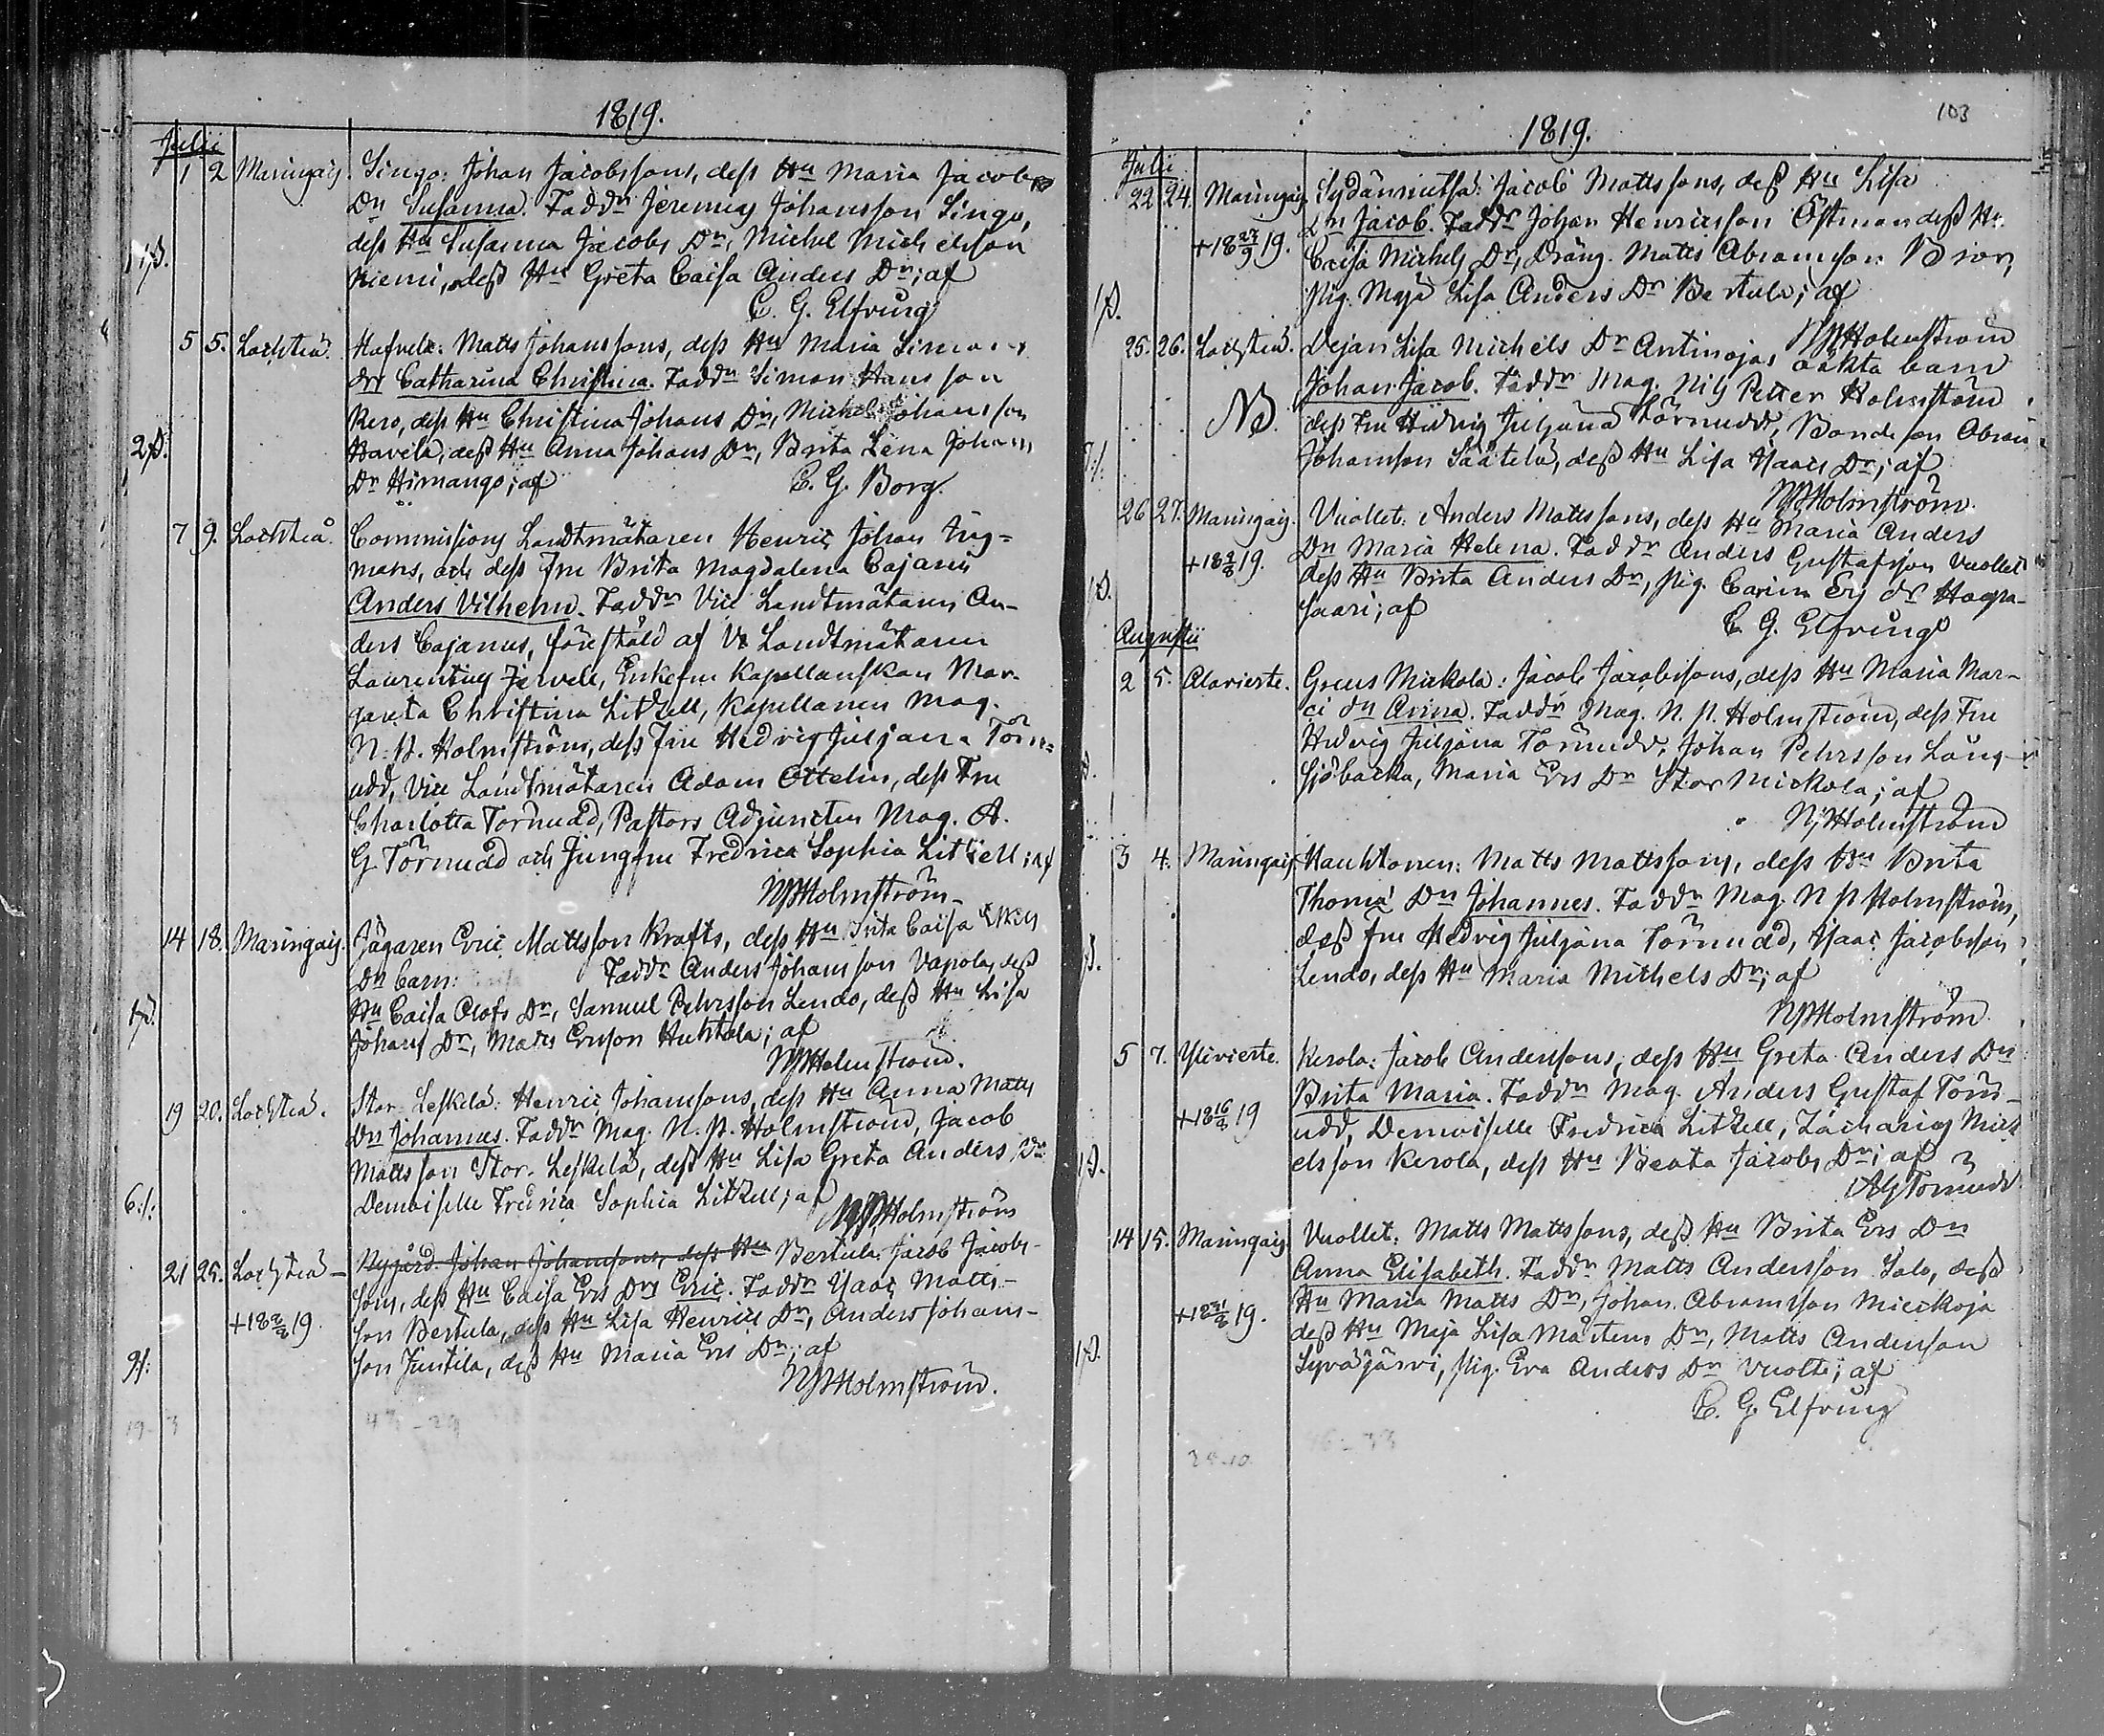 1819.
Julii
1 2 Maringais Singo: Johan Jacobssons, dess Hu Maria Jacobs
Dn Susanna. Faddr Jeremias Johansson Singo,
dess Hu Susanna Jacobs Dr, Michel Michelsson
Niemi, dess Hu Greta Caisa Anders Dr; af
C. G. Elfving
5 5. Lochteå. Hafvela: Matts Johanssons, dess Hu Maria Simons
dr Catharina Christina. Faddr Simon Hansson
Kero, dess Hu Christina Johans Dr, Michel Johansson
Havela, dess Hu Anna Johans Dr, Brita Lena Johans
Dr Himango; af C. G. Borg.
7 9. Lochteå Commissions Landtmätaren Henric Johan
mans, och dess Fru Brita Magdalena Cajani
Anders Vilhelm. Faddr Vice Landtmätaren An-
ders Cajanus, föreståld af V. Landtmätaren
Laurentius Jervell, Enkefru Kapellanskan Mar-
gareta Christina Litzell, Kapellanen Mag.
N. P. Holmström, dess Fru Hedvig Juljana Törn=
udd, Vice Landtmätaren Adam Ottelin, dess Fru
Charlotta Törnudd, Pastors Adjuncten Mag. A.
G Törnudd och Jungfru Fredrica Sophia Litzell; af
NPHolmström
14 18. Maringais. Jägaren Eric Mattsson Krafts, dess Hu Brita Caisa
Dr barn: Faddr Anders Johansson Vapola, dess
Hu Caisa Olofs Dr, Samuel Pehrsson Lendo, dess Hu Lisa
Johans Dr, Matts Ersson Huhtala; af
NPHolmström.
19 20. Lochteå. Stor Leskelä: Henric Johanssons, dess Hu Anna Matts
Dn Johannes. Faddr Mag. N. P. Holmström, Jacob
Mattsson Stor-Leskelä, dess Hu Lisa Greta Anders Dr
Demoiselle Fredrica Sophia Litzell; af
6:/: NPHolmström
21 25. Lochteå Nygård. Johan Johanssons, dess Hu Bertula: Jacob Jacobs-
sons, dess Hu Caisa Ers Drs Eric. Faddr Isaac Matts-
+18 2/8 19. son Bertula, dess Hu Lisa Henrics Dr, Anders Johans-
son Juntila, dess Hu Maria Ers Dr; af
9/: NPHolmström.
19-3 43-29
103
1819.
Julii
22 24. Maringais Sydänmetsä: Jacob Mattssons, dess Hu Lisa
Jacob. Faddr Johan Henricsson Östman dess Hu
+18 27/9 19. Caisa Michels Dr, Dräng. Matts Abramsson Biörn,
Pig. Maja Lisa Anders Dr Bertula; af
NPHolmström
25. 26. Lochteå. Dejan Lisa Michels Dr Antinoja, oäkta barn
Johan Jacob. Faddr Mag. Nils Petter Holmström
NB. dess Fru Hedvig Juljana Törnudd, Bondeson Abram
Johansson Säätelä, dess Hu Lisa Isaacs Dr; af
NPHolmström.
26 27. Maringais. Vuollet: Anders Mattssons, dess Hu Maria Anders
Dn Maria Helena. Faddr Anders Gustafsson Vuollet
+18 2/8 19. dess Hu Brita Anders Dr, Pig. Carin Ers dr Haapa-
saari; af
C. G. Elfving
Augustii
2 5. Alavieste. Greus Mickola: Jacob Jacobssons, dess Hu Maria Mar-
ci dr Anna. Faddr Mag. N. P. Holmström, dess Fru
Hedvig Juljana Törnudd, Johan Pehrsson Lång-
sjöbacka, Maria Ers Dr Stor Mickola; af
NPHolmström
3 4. Maringais Hauhtonen: Matts Mattssons, dess Hu Brita
Thomæ Dn Johannes. Faddr Mag. N P Holmström,
dess Fru Hedvig Juljana Törnudd, Isaac Jacobsson
Lendo, dess Hu Maria Michels Dr; af
NPHolmström.
5 7. Ylivieste. Kerola: Jacob Anderssons, dess Hu Greta Anders Dn
Brita Maria. Faddr Mag. Anders Gustaf Törn-
+18 16/8 19 udd, Demoiselle Fredrica Litzell, Zacharias Mich
elsson Kerola, dess Hu Beata Jacobs Dr; af
AGTörnudd
14 15. Maringais Vuollet: Matts Mattssons, dess Hu Brita Ers Dn
Anna Elisabeth. Faddr Matts Andersson Salo, dess
+18 31/8 19. Hu Maria Matts Dr, Johan Abramsson Mieckoja
dess Hu Maja Lisa Mårtens Dr, Matts Andersson
Syväjärvi, Pig. Eva Anders Dr Vuolte; af
C. G. Elfving